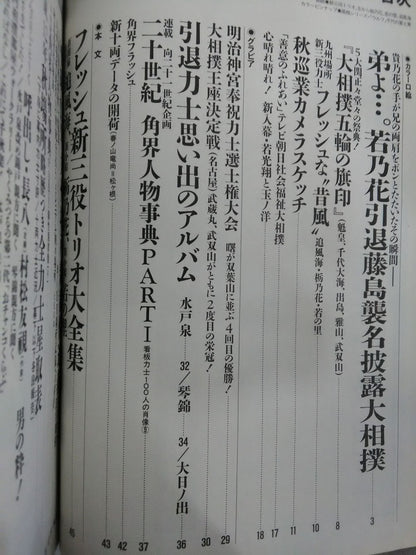 ●カラー口絵
貴乃花の手が兄の両肩をポンとたたいたその瞬間
弟よ…。若乃花引退藤島襲名披露大相撲 3
“5大関正々堂々”の祭典!
『大相撲五輪の旗印』(魁皇、千代大海、出島、雅山、武双山) 8
九州場所
新三役力士 フレッシュな“昔風” 追風海・栃乃花・若の里 10
秋巡業カメラスケッチ 11
●グラビア
「善意のふれあい」テレビ朝日社会福祉大相撲 17
心晴れ晴れ!新入幕・若光翔と玉ノ洋 18
明治神宮奉祝力士選士権大会 曙が双葉山に並ぶ4回目の優勝! 29
大相撲王座決定戦(名古屋)武蔵丸、武双山がともに2度目の栄冠! 30
引退力士思い出のアルバム 水戸泉 32/琴錦 34/大日ノ出 36
連載 向二十一世紀企画
二十世紀 角界人物事典PARTⅠ 看板力士100人の肖像⑤ 37
角界フラッシュ 42
新十両データの開荷 43
●本文
フレッシュ新三役トリオ大全集 46
男の粋!